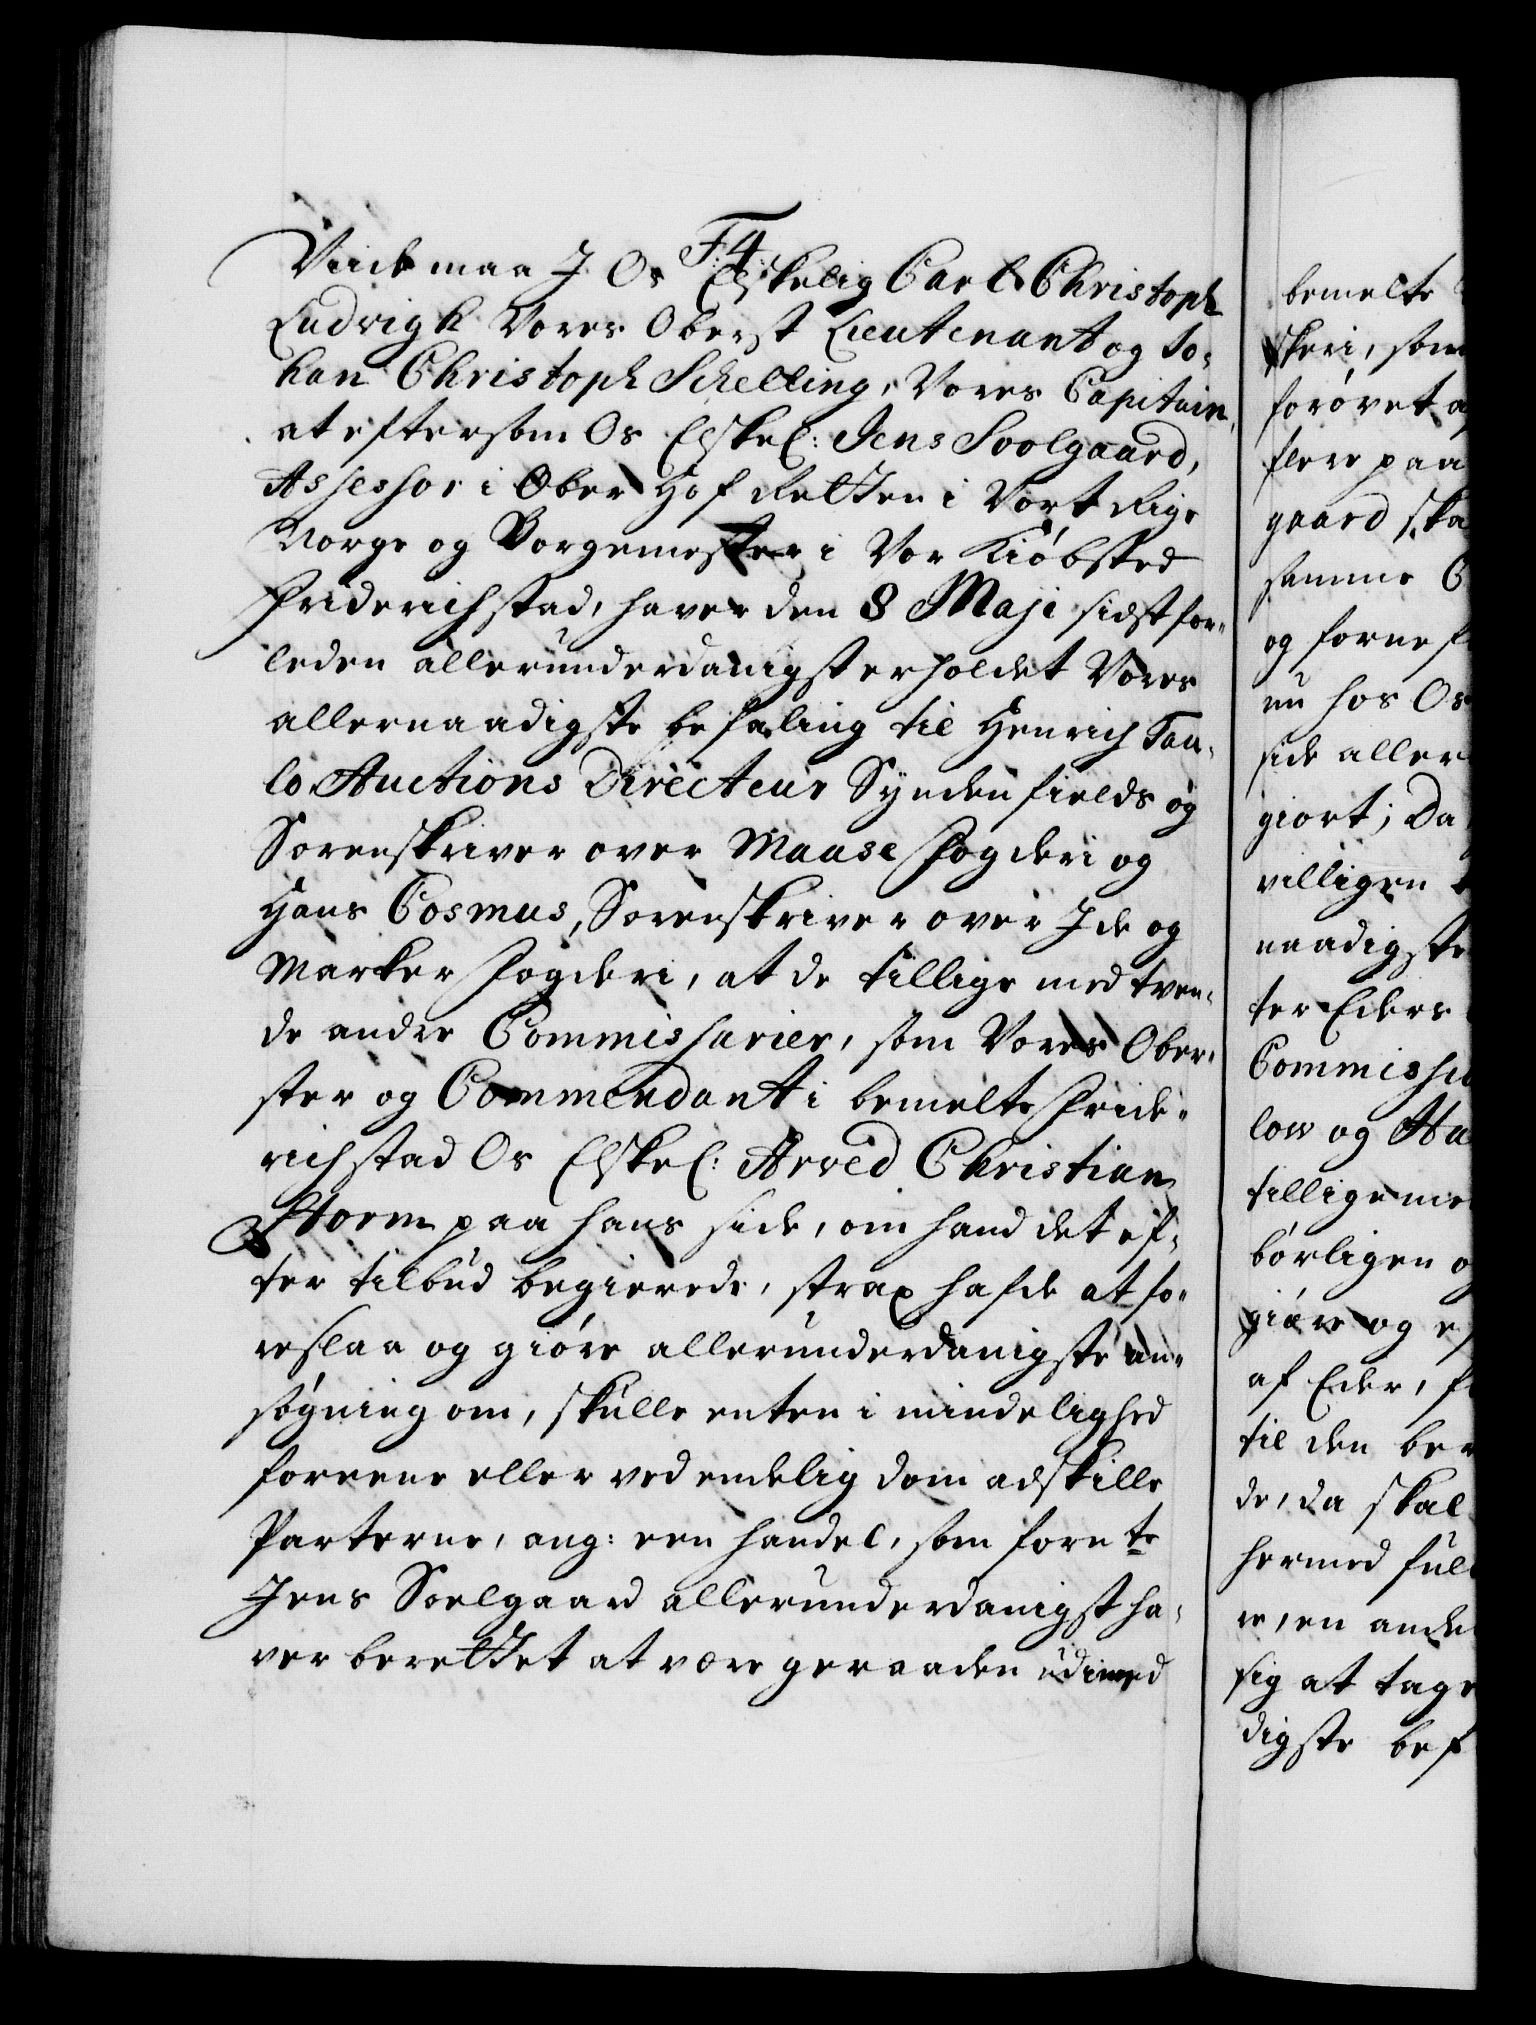 F: 4.
Viide maa J Os Elskelig Carl Christoph
Ludvigh Vores Oberst Lieutenant og Jo-
han Christoph Schelling, Vores Capitain,
at eftersom Os Elskel: Jens Soelgaard,
Assessor i Ober Hof Retten i Vort Rige
Norge og Borgemester i Vor Kiøbsted
Friderichstad, haver den 8 Maji sidst for-
leden allerunderdanigst erholdet Vores
allernaadigste befaling til Henrich Tau-
lo, Auctions Directeur Synden fields og
Sorenskriver over Maase Fogderi og
Hans Cosmus, Sorenskriver over Ide og
Marker Fogderi, at de tillige med tven-
de andre Commissarier, som Vores Ober-
ster og Commendant i bemelte Fride-
richstad Os Elskel: Arved Christian
Storm paa hans side, om hand det ef-
ter tilbud begierede, strax hafde at fo-
reslaa og giøre allerunderdanigste an-
søgning om, skulle enten i mindelighed
foreene eller ved endelig dom adskille
Parterne, ang: een handel, som forn te
Jens Soelgaard allerunderdanigst ha-
ver berettet at være geraaden udi med
bemelte
skeri, som
forøvet a
flere paa
gaard ska
samme C
og forne
nu hos Os
side aller
giort; Da
villigen
naadigste
ter Eders
Commissa
low og Ha
tillige me
børligen o
giøre og e
af Eder, f
til den be
de, da skal
hermed ful
re, en ande
sig at tage
digste bef